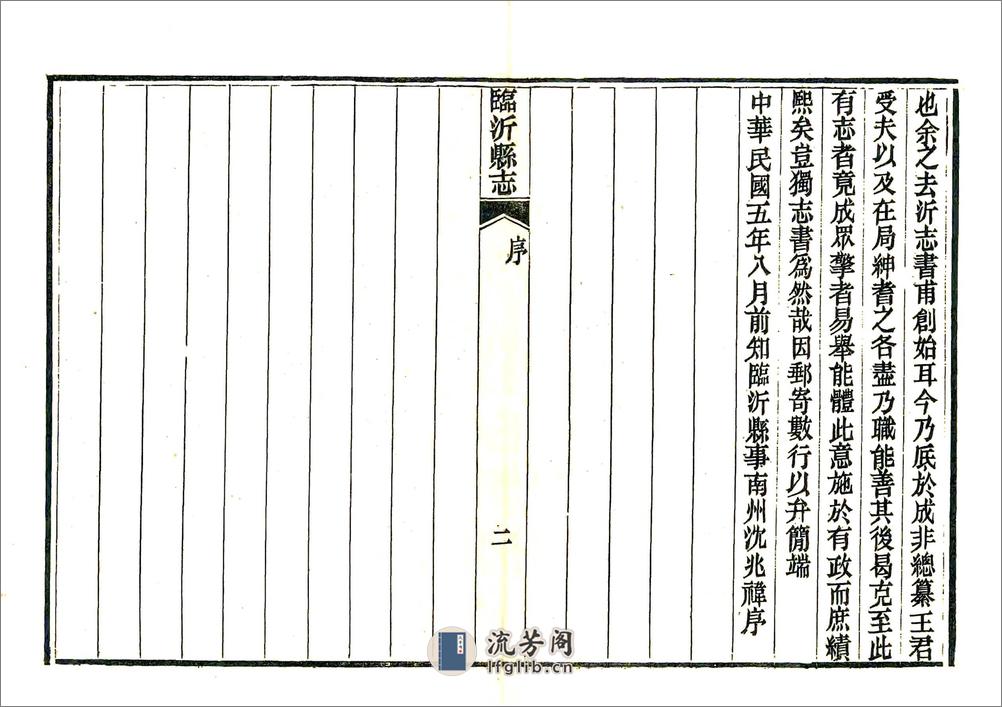 也余之去沂志書甫創始耳今乃底於成非總纂王君
受夫以及在局紳耆之各盡乃職能善其後曷克至此
有志者竟成眾擎者易舉能體此意施於有政而庶績
熙矣豈獨志書爲然哉因郵寄數行以弁簡端
中華民國五年八月前知臨沂縣事南州沈兆禕序
臨沂縣志
序
二
流芳阁
lfglib.cn